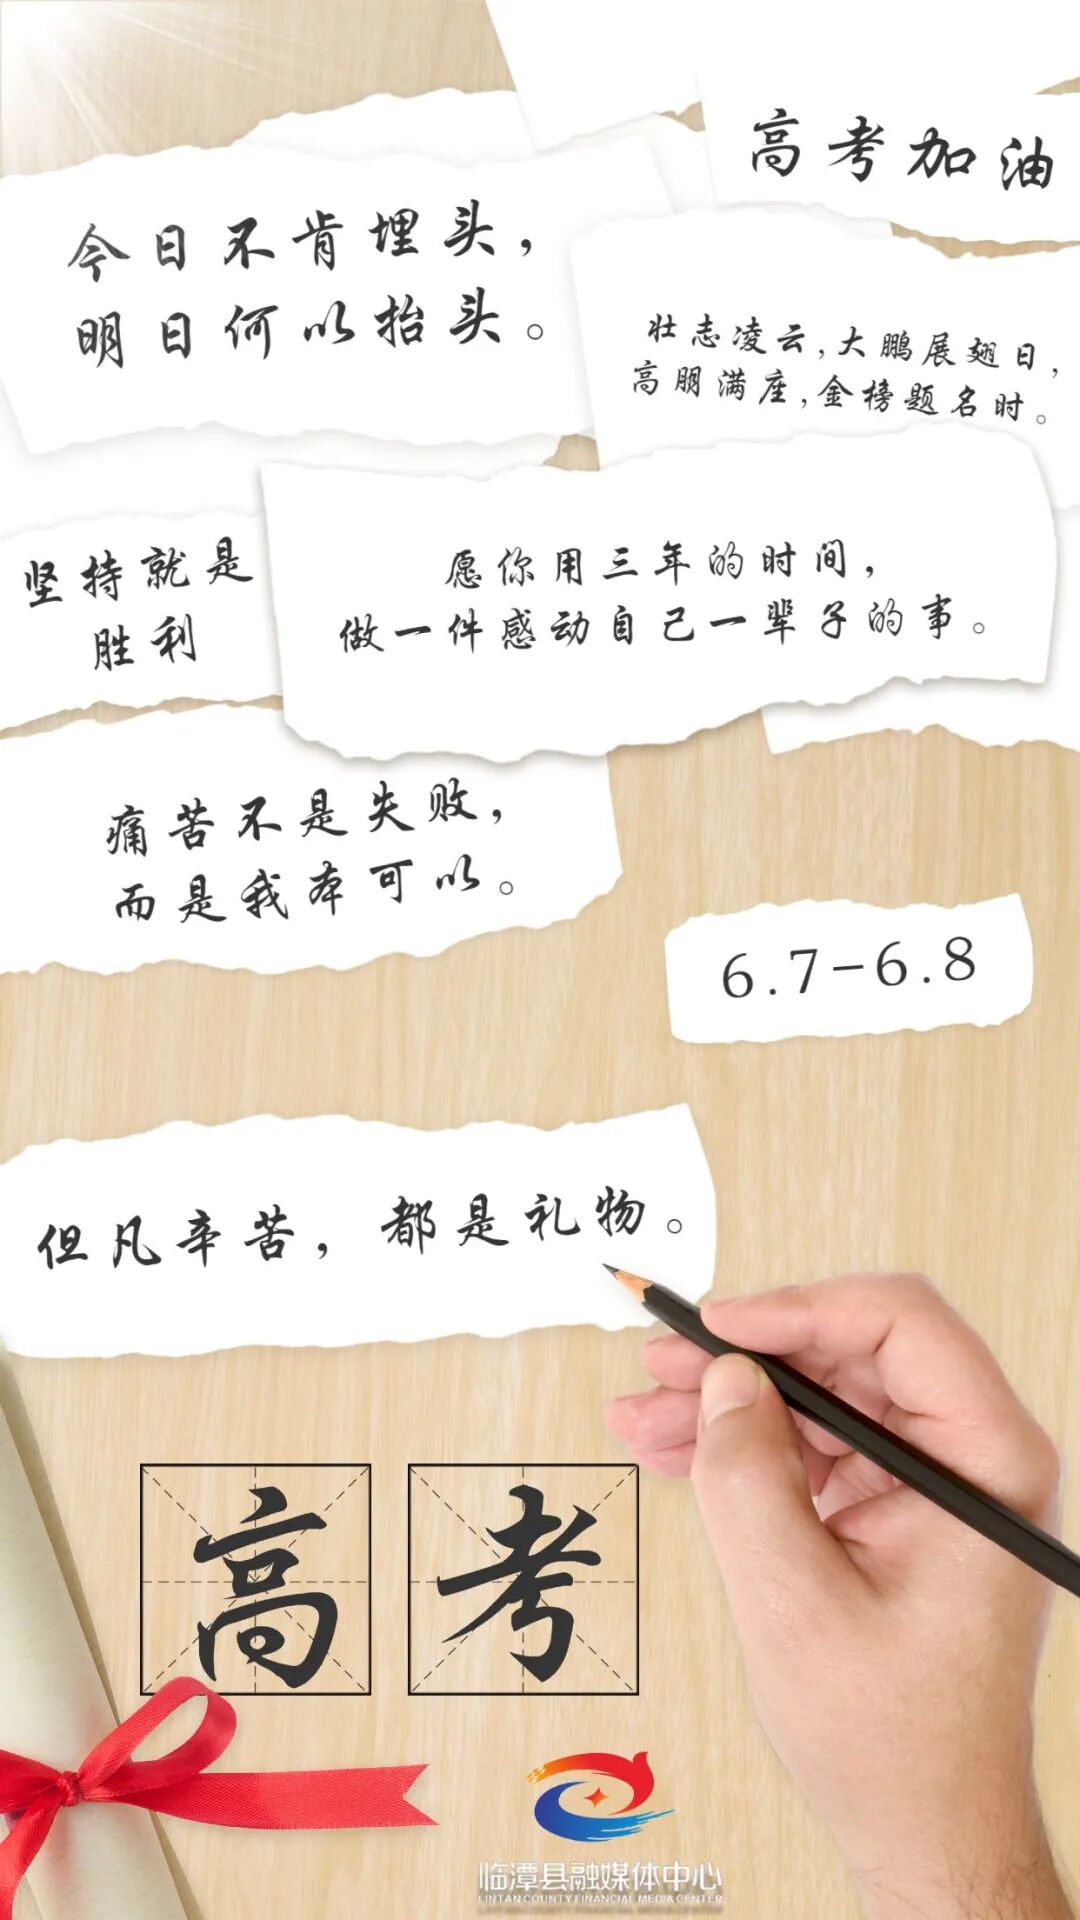 高考加油
今日不肯埋头，
明日何以抬头。
壮志凌云，大鹏展翅日，
高朋满座，金榜题名时。
坚持就是
胜利
愿你用三年的时间，
做一件感动自己一辈子的事。
痛苦不是失败，
而是我本可以。
6.7-6.8
但凡辛苦，都是礼物。
高考
临潭县融媒体中心
LINTAN COUNTY FINANCIAL MEDIA CENTER